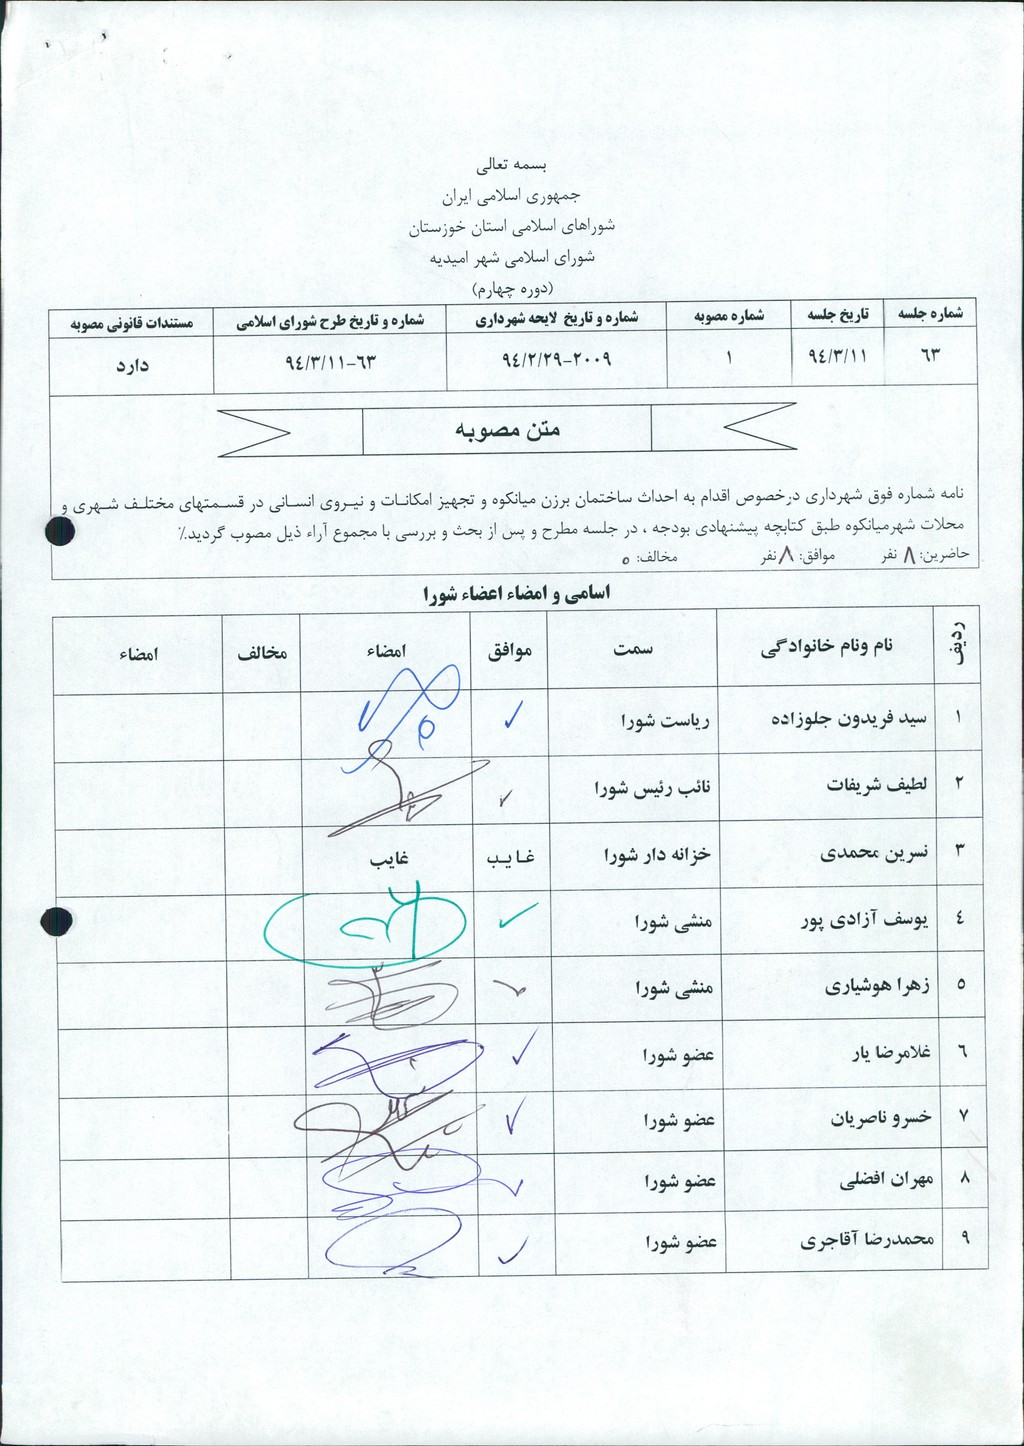 بسمه تعالی
جمهوری اسلامی ایران
شوراهای اسلامی استان خوزستان
شورای اسلامی شهر امیدیه
(دوره چهارم)
شماره جلسه تاریخ جلسه شماره مصوبه شماره و تاریخ لایحه شهرداری شماره و تاریخ طرح شورای اسلامی مستندات قانونی مصوبه
۶۳ ۹٤/۳/۱۱ ۱ ۲۰۰۹-۹٤/۲/۲۹ ۶۳-۹٤/۳/۱۱ دارد
متن مصوبه
نامه شماره فوق شهرداری درخصوص اقدام به احداث ساختمان برزن میانکوه و تجهیز امکانات و نیروی انسانی در قسمتهای مختلف شهری و
محلات شهرمیانکوه طبق کتابچه پیشنهادی بودجه ، در جلسه مطرح و پس از بحث و بررسی با مجموع آراء ذیل مصوب گردید.٪
حاضرین: ۸ نفر موافق: ۸ نفر مخالف: ۰
اسامی و امضاء اعضاء شورا
ردیف نام ونام خانوادگی سمت موافق امضاء مخالف امضاء
۱ سید فریدون جلوزاده ریاست شورا ✓
۲ لطیف شریفات نائب رئیس شورا ✓
۳ نسرین محمدی خزانه دار شورا غایب غایب
٤ یوسف آزادی پور منشی شورا ✓
٥ زهرا هوشیاری منشی شورا ✓
٦ غلامرضا یار عضو شورا ✓
۷ خسرو ناصریان عضو شورا ✓
۸ مهران افضلی عضو شورا ✓
۹ محمدرضا آقاجری عضو شورا ✓